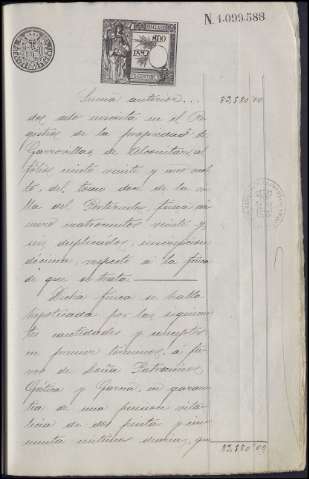 N. 1.099.588
Suma anterior... 83,580 00
dos, ado inscrita en el Re-
gistro de la propiedad de
Garrovillas de Alconétar, al
fólio ciento veinte y nueve
to, del tomo dos de la vi-
lla del Portezuelo, finca nú-
mero cuatrocientos veinte y
seis duplicado, inscripcion
décima, respecto á la finca
de que se trata.
Dicha finca se halla
hipotecada por las siguien-
tes cantidades y conceptos
en primer término, á fa-
vor de Doña Patrocinio
y García, en garan-
tía de una pension vita-
licia de dos pesetas y cin-
cuenta céntimos diarios, que
83,580 00